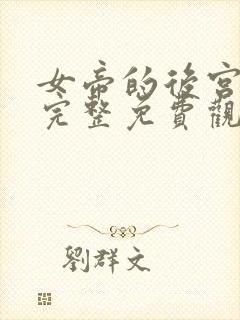 女帝的後宮
完整免費觀
劉群文